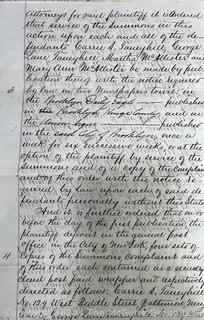 Attorneys for said plaintiff it is Ordered
that service of the Summons in this
action upon each and all of the de-
fendants Carrie S. Taneyhill, George
Lane Taneyhill, Martha McAllister and
Mary Ann McAllister be made by publi-
cation thereof with the notice required
3
by law in two Newspapers towit: in
the Brooklyn Daily Eagle published
in the and in
the published
in the said City of Brooklyn once a
week for six successive weeks, or at the
option of the plaintiff, by service of the
Summons and of a copy of the Complaint
and of this order with the notice re-
quired by law upon each of said de-
fendants personally without this State
And it is further ordered that on or
before the day of the first publication the
plaintiff deposit in the general post
office in the City of New York, four sets of
4
copies of the Summons, Complaint and
of this order each contained in a securely
closed post paid wrapper and respectively
directed as follows: Carrie S. Taneyhill
No. 129 West Biddle Street Baltimore, Mary-
land;
No. 129 West Biddle Street